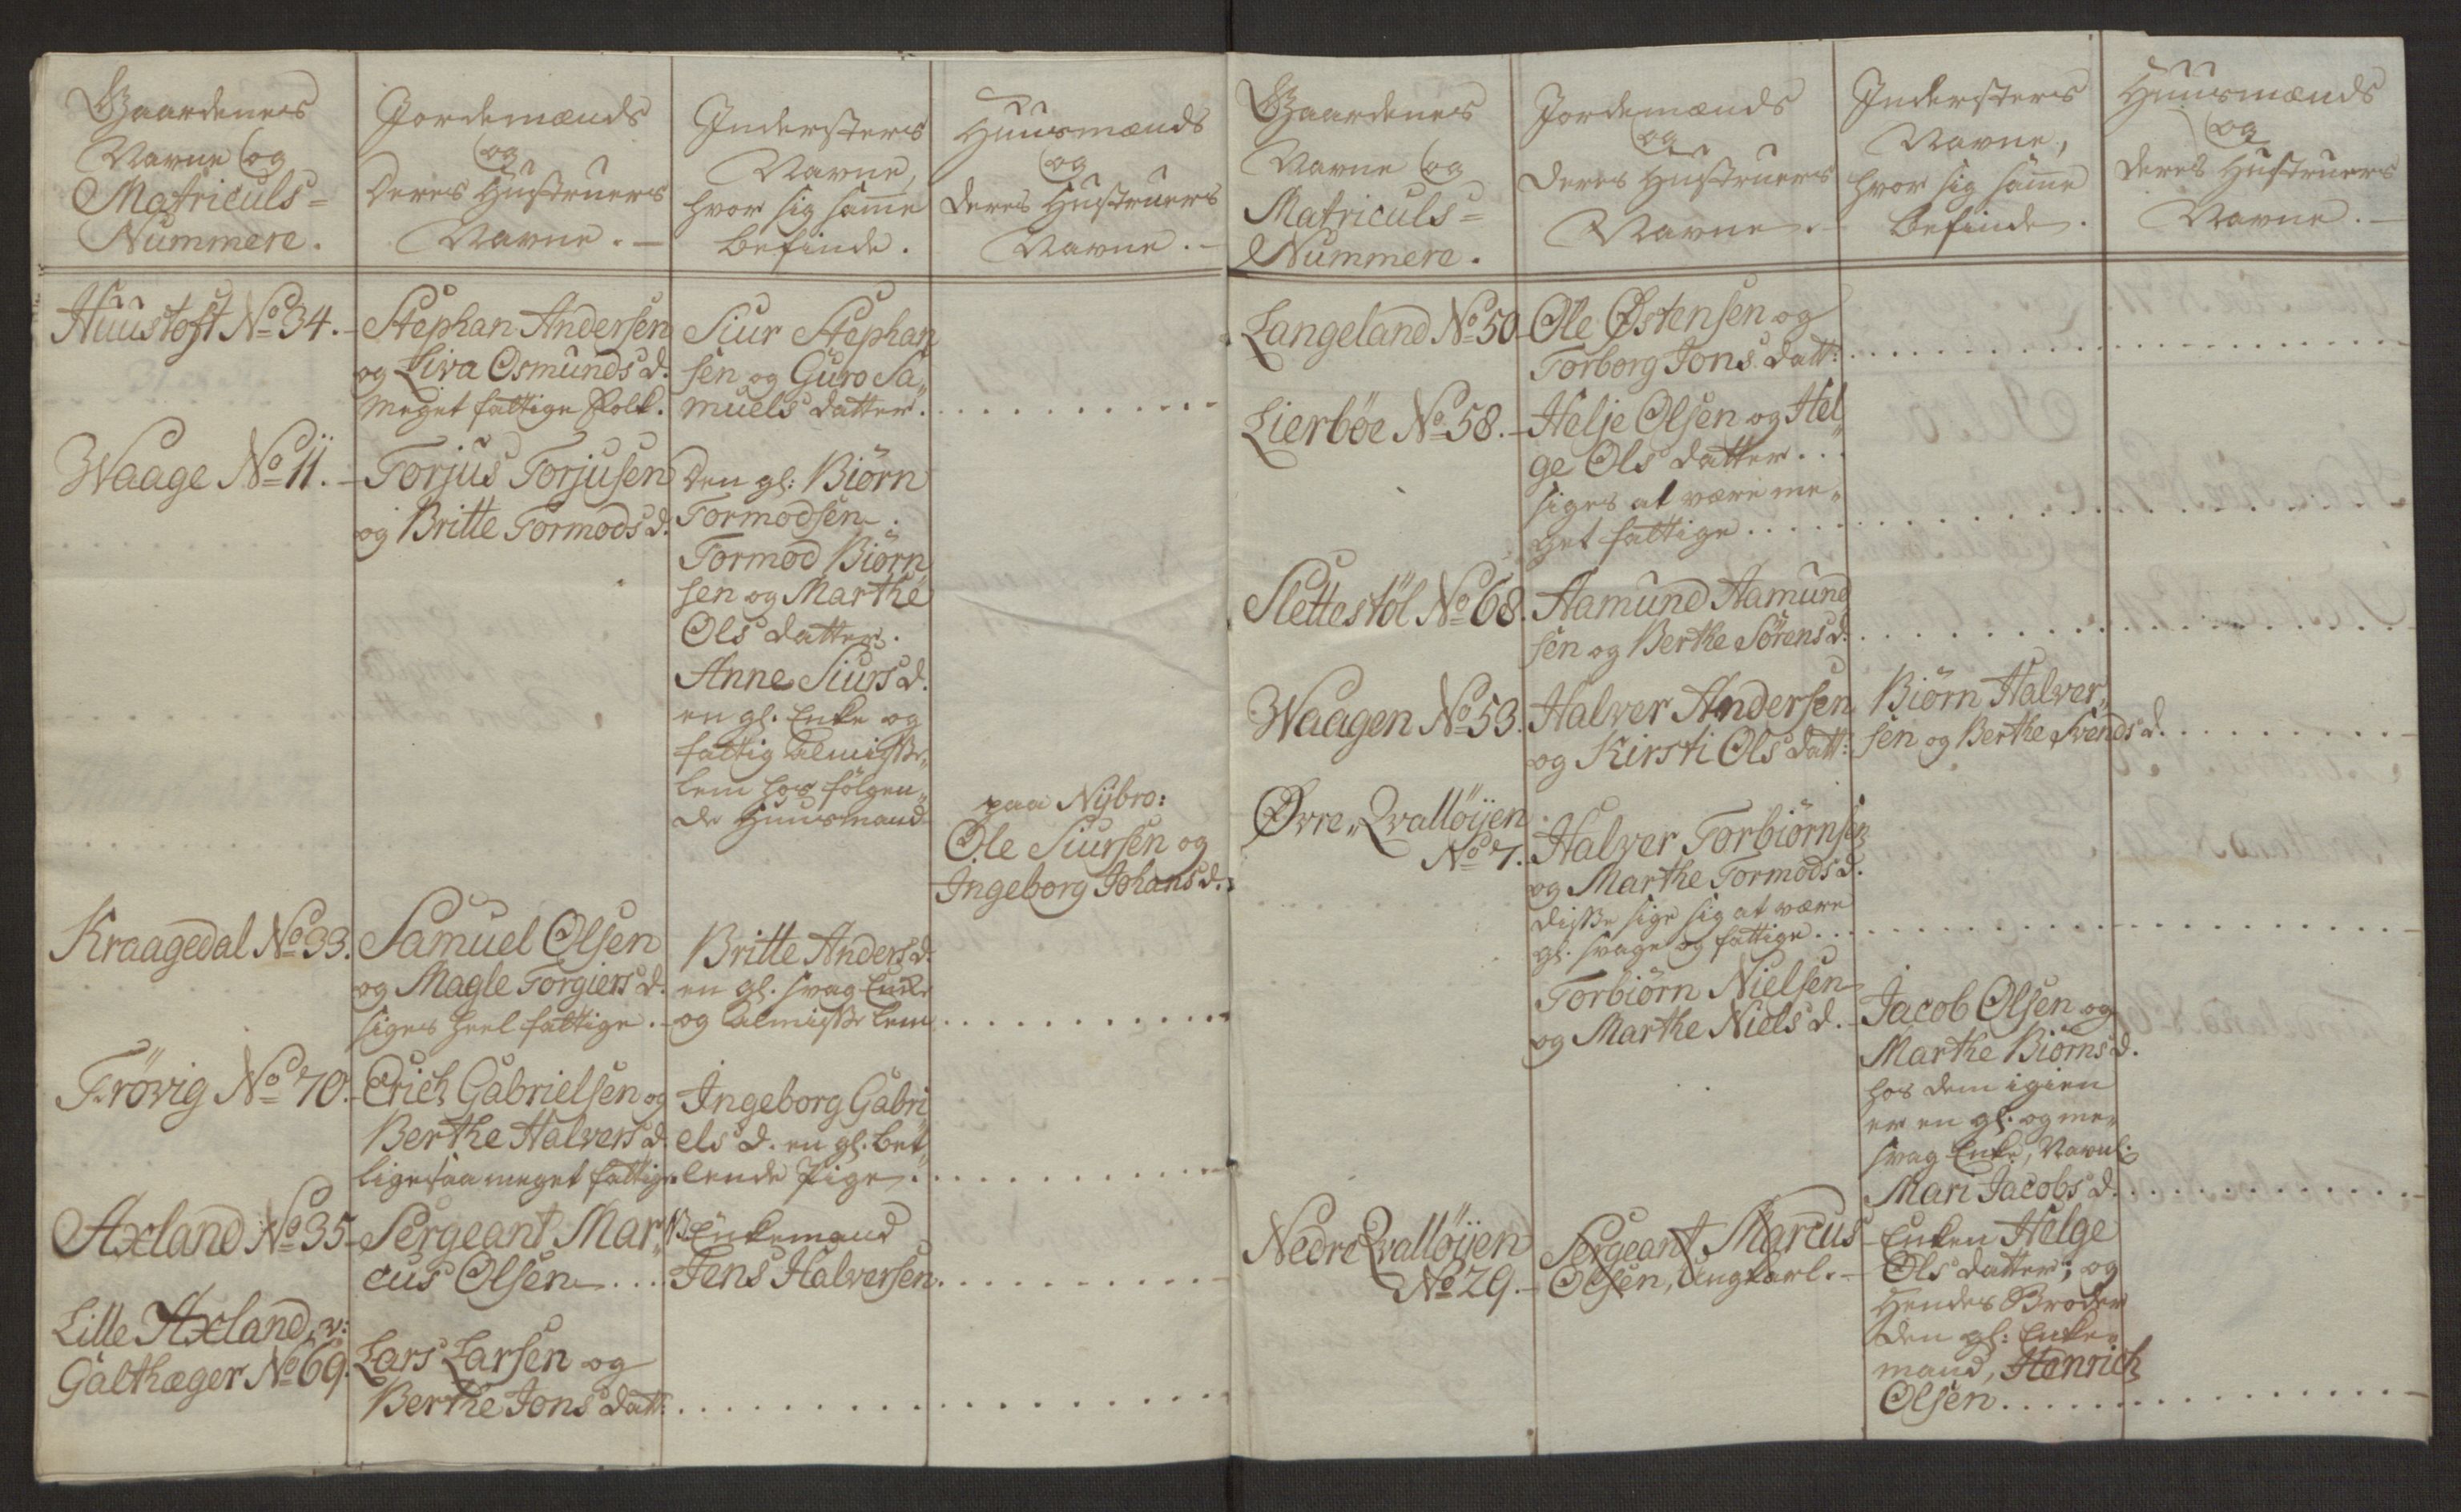 Gaardenes
Navne og
Matriculs=
Nummere.
Jordemænds
og
Deres Hustruers
Navne. —
Indersters
Navne,
hvor sig samme
befinde.
Huusmænds
og
Deres Hustruers
Navne. —
Huustoft No 34. –
Stephan Andersen
og Liva Osmunds d.
Meget fattige Folk.
Siur Stephan„
sen og Guro Sa„
muels datter.
Waage No 11. –
Torjus Torjusen
og Britte Tormods d.
Den gl: Biörn
Tormodsen.
Tormod Biörn
sen og Marthe
Ols datter.
Anne Siurs d.
en gl. Enke og
fattig Almisse„
lem hos følgen„
de Huusmand
paa Nÿbro:
Ole Siursen og
Ingeborg Johans d.
Kraagedal No 33.
Samuel Olsen
og Magle Torgiers d.
siges heel fattige. –
Britte Anders d.
en gl. svag Enke
og Almisse Lem
Trövig No 70. –
Erich Gabrielsen og
Berthe Halvers d.
ligesaa meget fattige
Ingeborg Gabri„
els d. en gl. bet„
lende Pige.
Axland No 35 –
Sergeant Mar„
cus Olsen
Enkemand
Jens Halversen
Lille Axland, v:
Galthæger No 69.
Lars Larsen og
Berthe Jons datt:
Gaardenes
Navne og
Matriculs=
Nummere.
Jordemænds
og
Deres Hustruers
Navne. –
Indersters
Navne,
hvor sig samme
befinde.
Huusmænds
og
Deres Hustruers
Navne. –
Langeland No 50 –
Ole Østensen og
Torborg Jons datt:
Lierböe No 58. –
Helje Olsen og Hel„
ge Ols datter...
siges at være me„
get fattige
Slettestöl No 68.
Aamund Aamund
sen og Berthe Sörens d.
Waagen No 53.
Halver Andersen
og Kirsti Ols datt:
Biörn Halver„
sen og Berthe Svends d.
Øvre„ Qvallöÿen
No 7. –
Halver Torbiörnsen
og Marthe Tormods d.
disse sige sig at være
gl. svage og fattige.
Torbiörn Nielsen
og Marthe Niels d. –
Jacob Olsen og
Marthe Biörns d.
hos dem igien
er en gl. og me„
svag Enke, Navnl:
Mari Jacobs d.
Nedre Qvallöÿen
No 29. –
Sergeant Marcus
Olsen, Ungkarl. –
Enken Helge
Ols datter; og
Hendes Broder
den gl: Enke„
mand, Henrich
Olsen